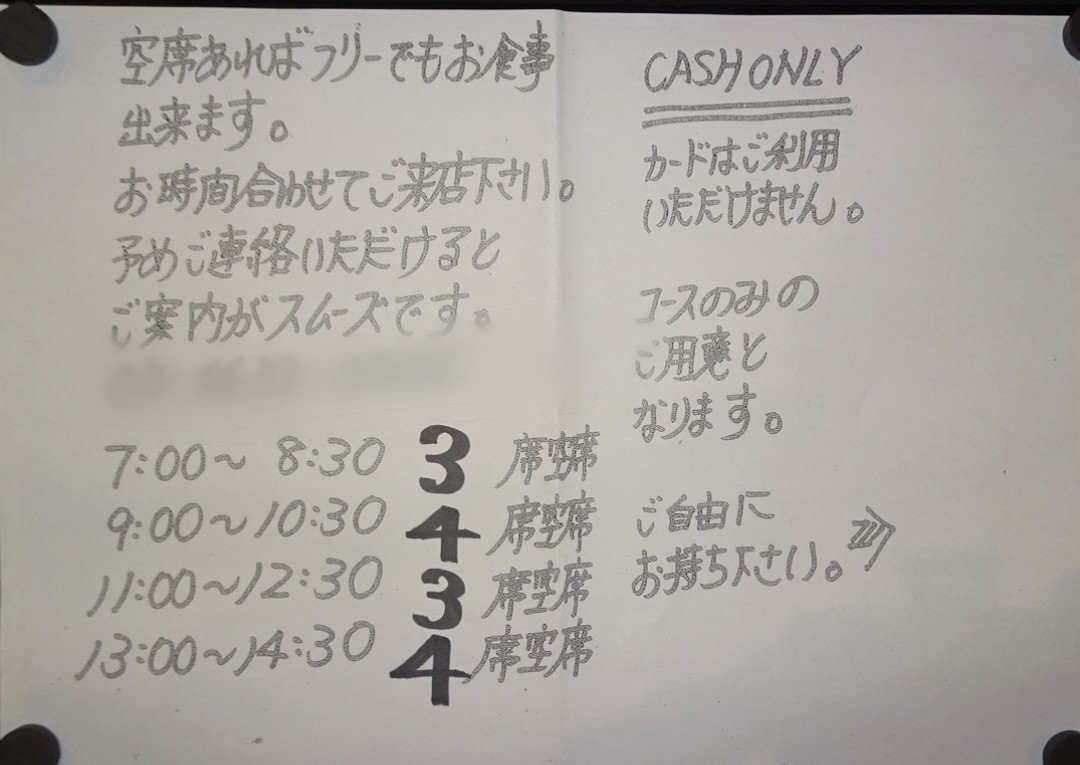 空席あればフリーでもお食事
出来ます。
お時間合わせてご来店下さい。
予めご連絡いただけると
ご案内がスムーズです。
7:00〜 8:30 3 席空席
9:00〜10:30 4 席空席
11:00〜12:30 3 席空席
13:00〜14:30 4 席空席
CASH ONLY
カードはご利用
いただけません。
コースのみの
ご用意と
なります。
ご自由に
お持ち下さい。